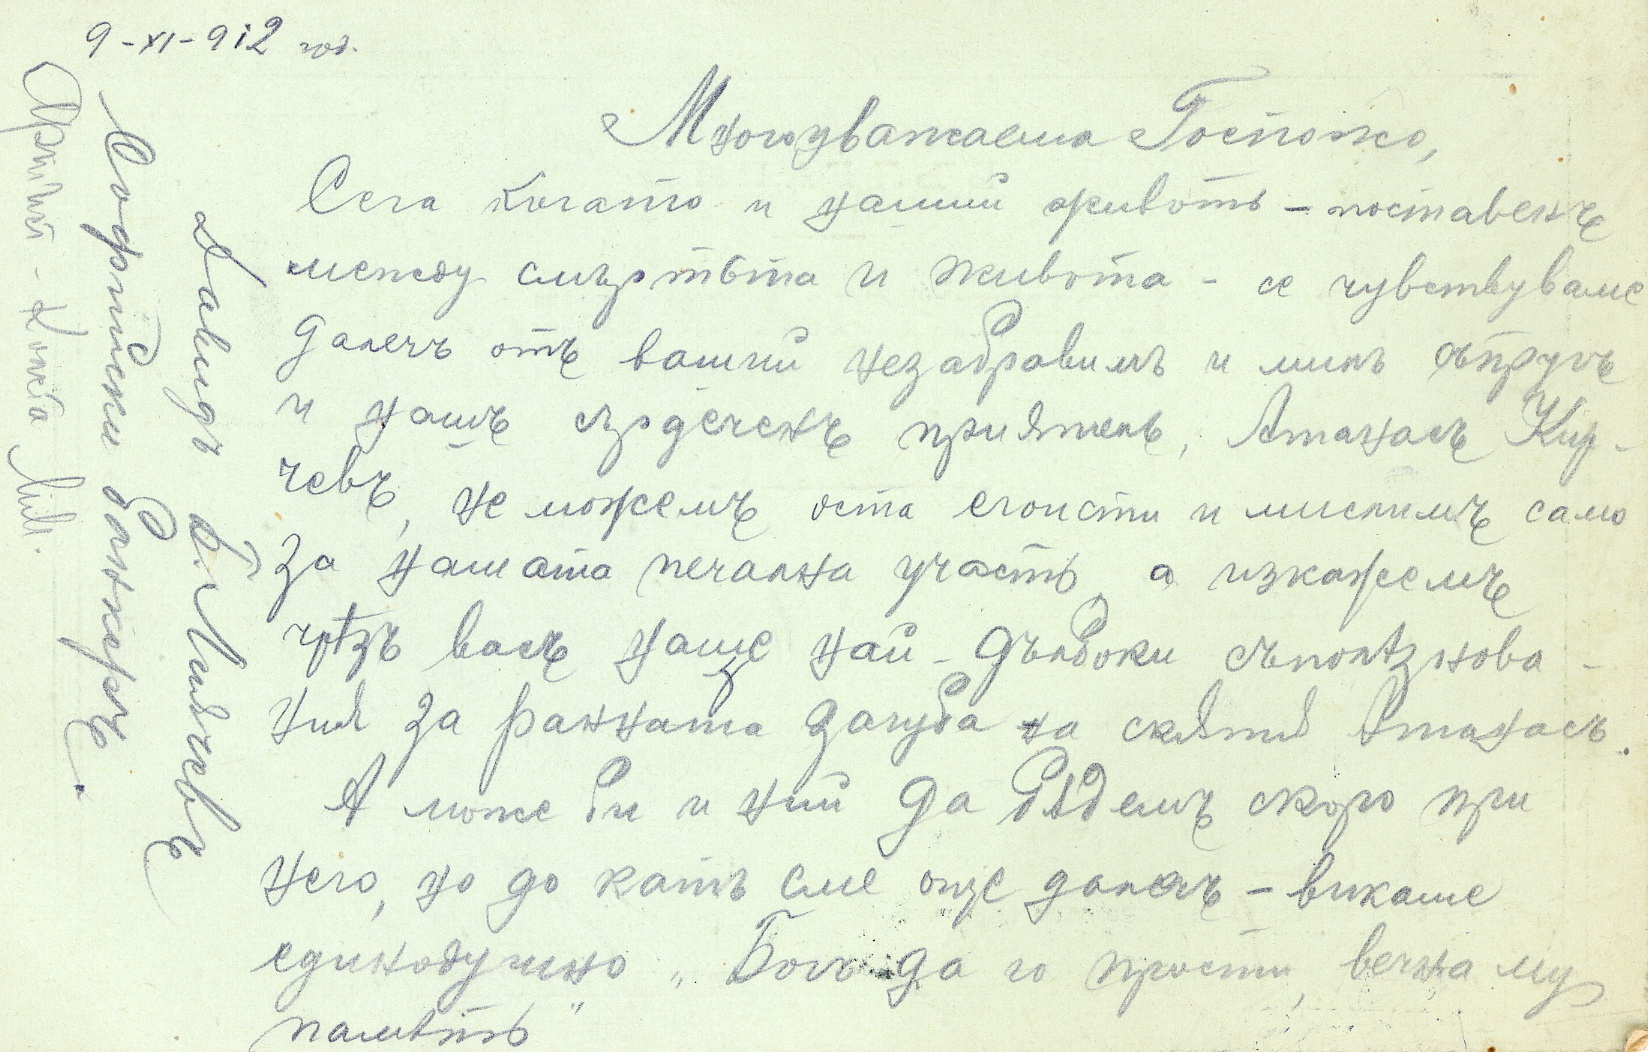 9-XI-912 год.
Многоуважаема Госпожо,
Сега когато и нашии животъ – поставенъ
между смъртьта и живота - се чувствуваме
далечъ отъ вашии незабравимъ и милъ съпругъ
и нашъ сърдеченъ приятель, Атанасъ Кир-
чевъ, не можемъ оста егоисти и мислимъ само
за нашата печална участь, а изкажемъ
чрѣзъ васъ наще най-дълбоки съполѣзнова-
ния за ранната загуба на скѫпия Атанасъ.
А може би и ний да бѫдемъ скоро при
него, но до катъ сме още далечъ – викаме
единодушно „Богъ да го прости, вечна му
паметь"
Давидъ Б. Лиячевъ
Софийски Банкеръ.